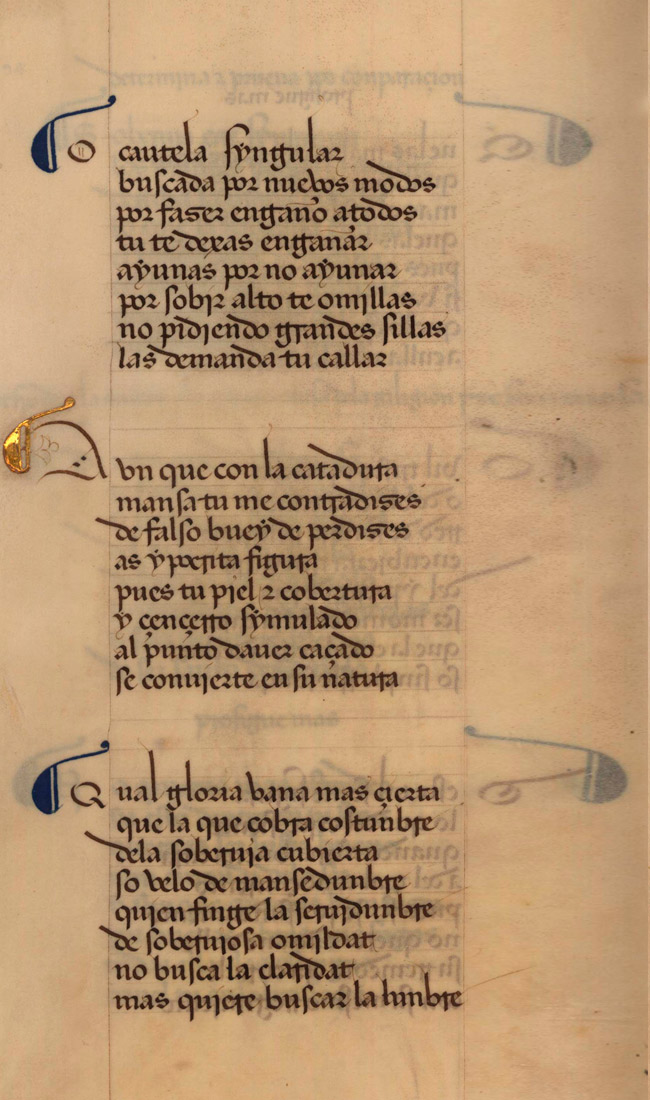 O cautela syngular
buscada por nuevos modos
por faser engaño atodos
tu te dexas engañar
ayunas por no ayunar
por sobir alto te omillas
no pidiendo grandes sillas
las demanda tu callar
Avn que con la catadura
mansa tu me contradises
de falso buey de perdises
as ypocrita figura
pues tu piel z cobertura
y çençerro symulado
al punto daver caçado
se convierte en su natura
Qual gloria vana mas çierta
que la que cobra costunbre
dela sobervia cubierta
so velo de mansedunbre
quien finge la servidunbre
de soberviosa omildat
no busca la claridat
mas quiere buscar la lunbre